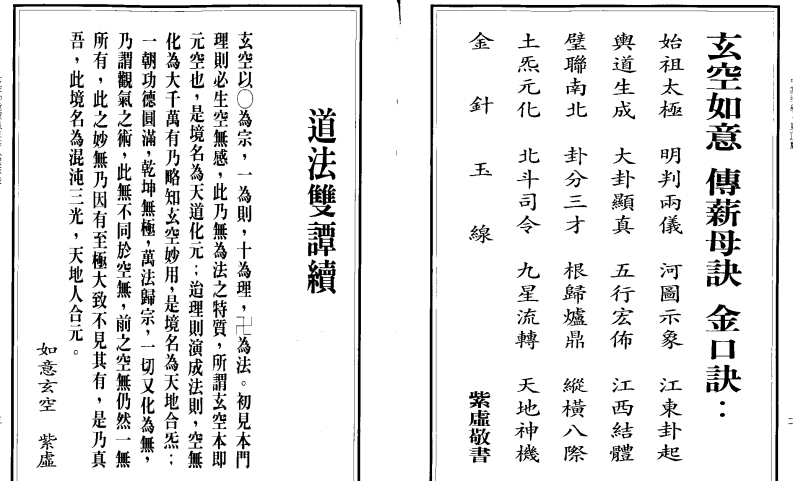 玄空如意 傳薪母訣 金口訣：
始祖太極 明判兩儀 河圖示象 江東卦起
輿道生成 大卦顯真 五行宏佈 江西結體
璧聯南北 卦分三才 根歸爐鼎 縱橫八際
土炁元化 北斗司令 九星流轉 天地神機
金針玉線 紫虛敬書
道法雙譚續
玄空以〇為宗，一為則，十為理，卍為法。初見本門
理則必生空無感，此乃無為法之特質，所謂玄空本即
元空也，是境名為天道化元；迨理則演成法則，空無
化為大千萬有乃略知玄空妙用，是境名為天地合炁；
一朝功德圓滿，乾坤無極，萬法歸宗，一切又化為無，
乃謂觀氣之術，此無不同於空無，前之空無仍然一無
所有，此之妙無乃因有至極大致不見其有，是乃真
吾，此境名為混沌三光，天地人合元。
如意玄空 紫虛